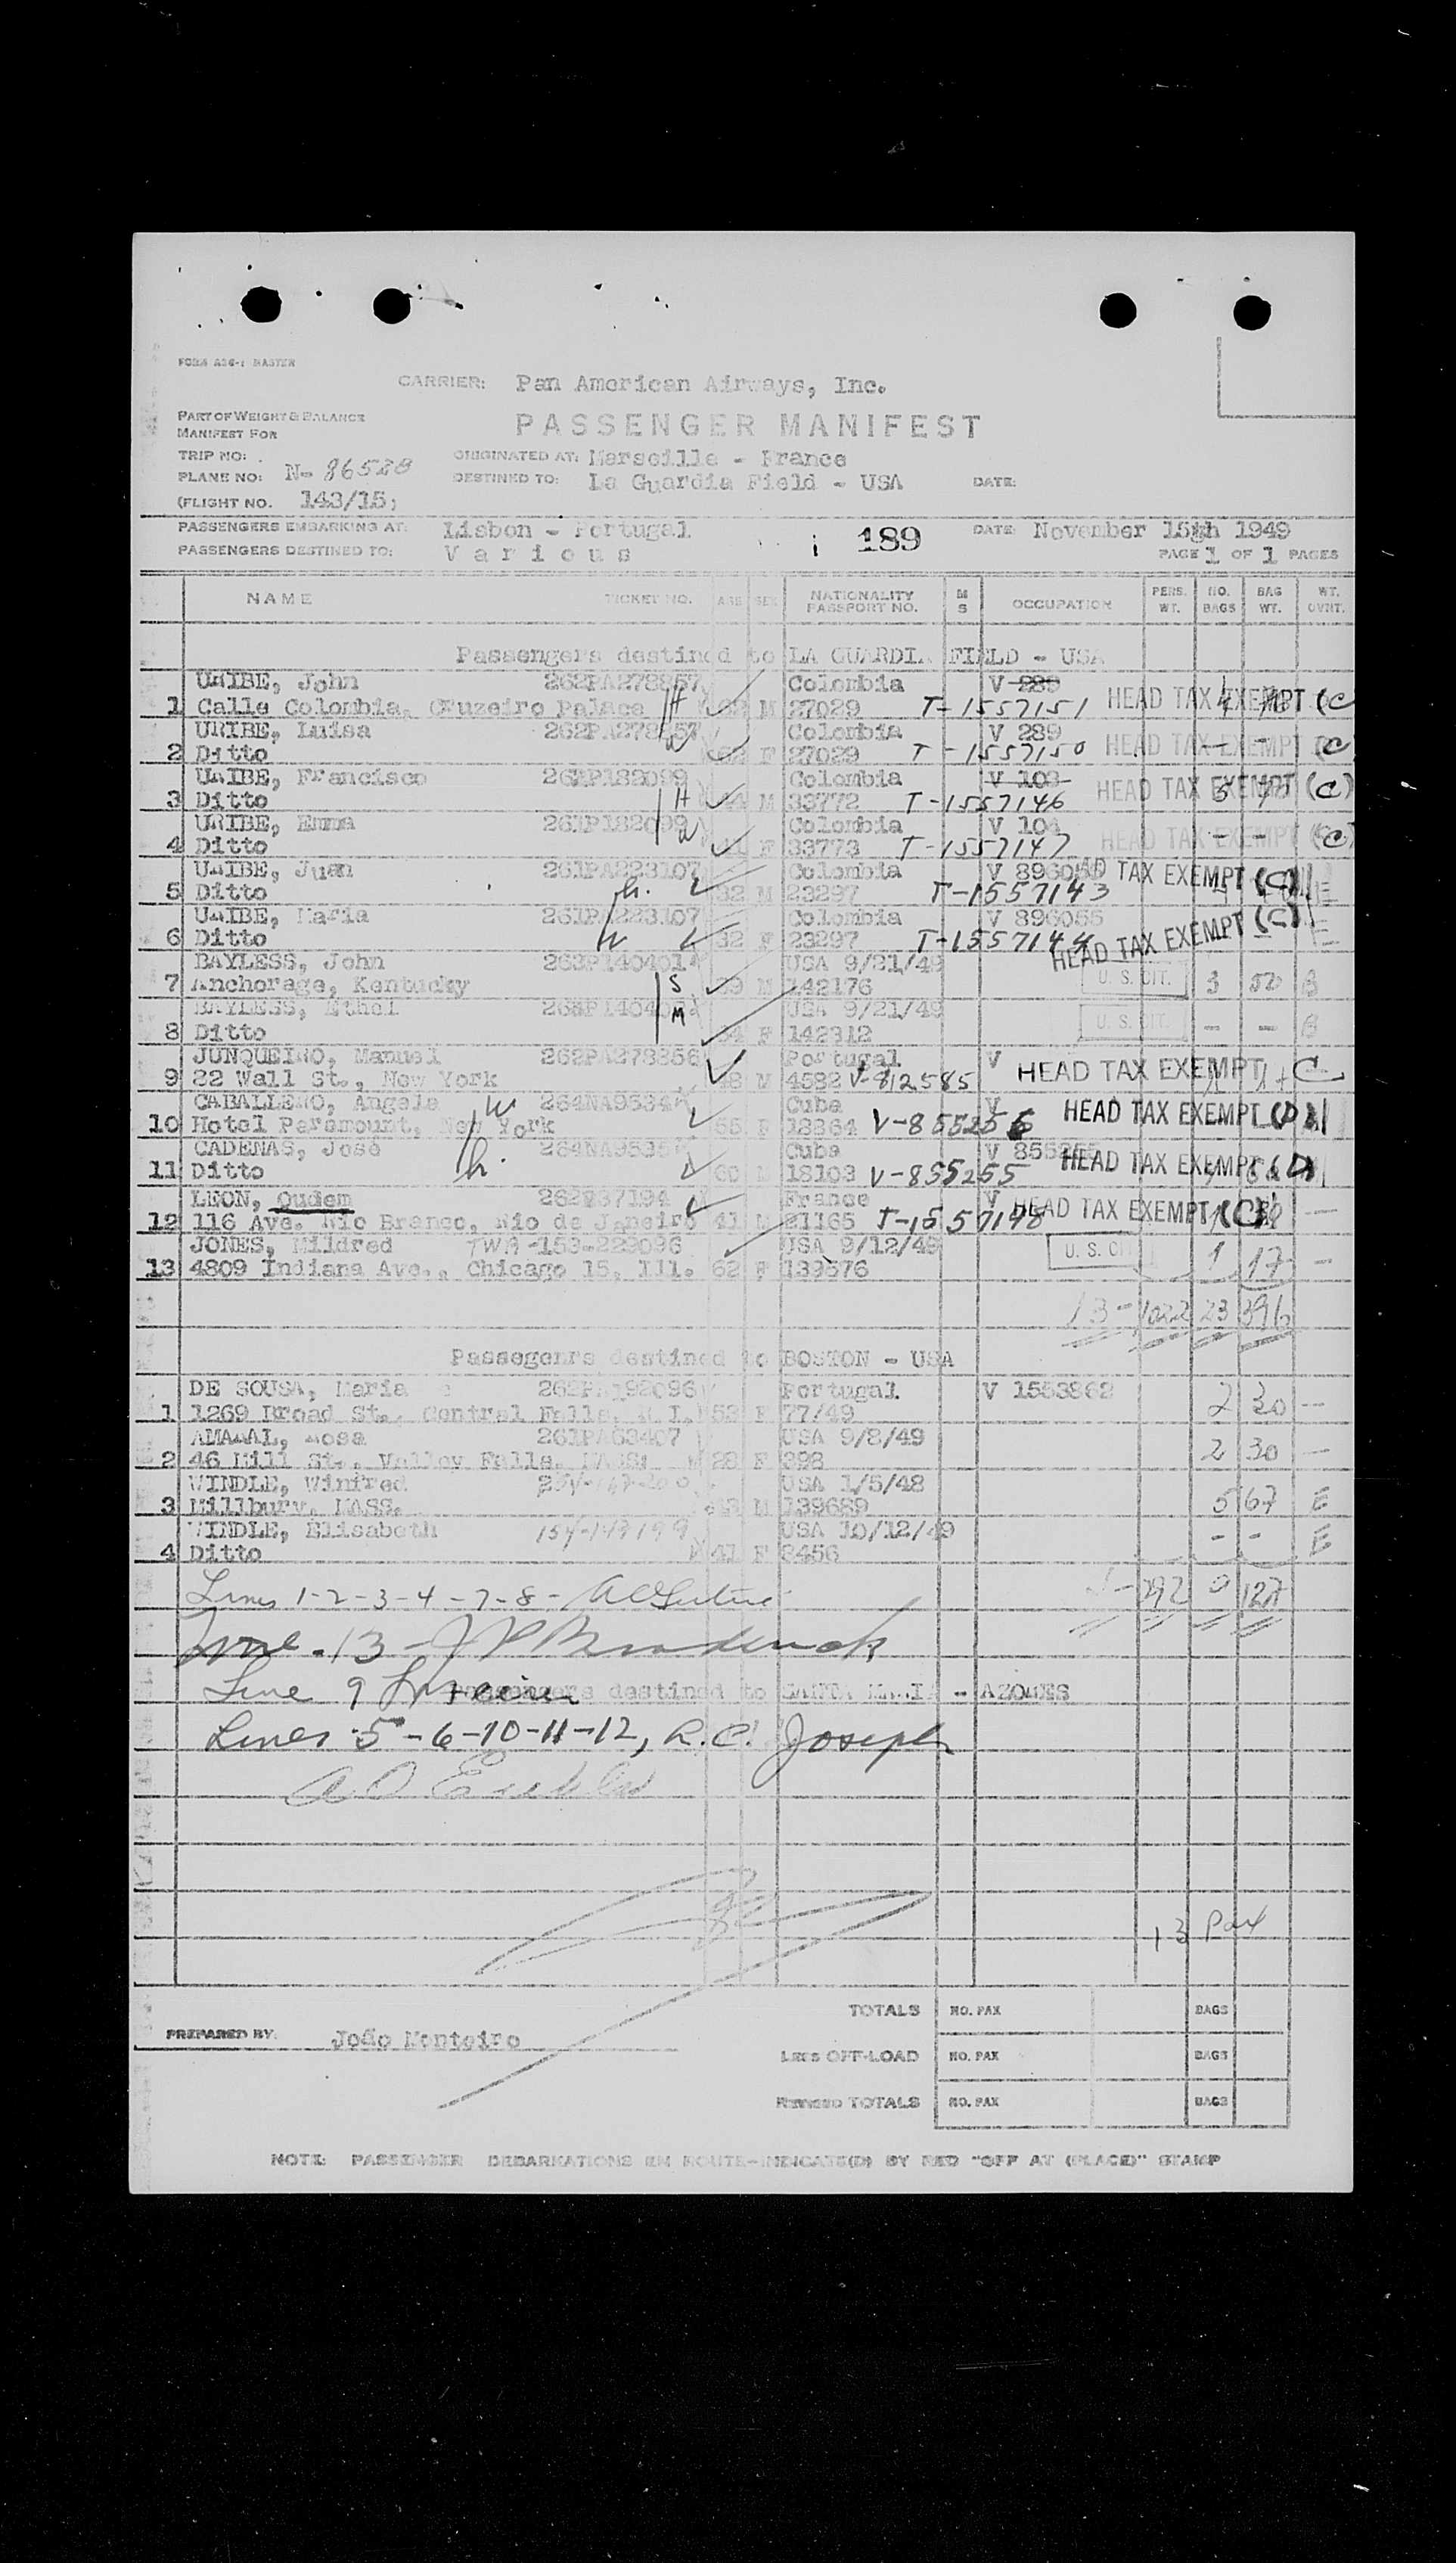 FORM A26-1 MASTER
CARRIER: Pan American Airways, Inc.
PART OF WEIGHT & BALANCE
MANIFEST FOR
PASSENGER MANIFEST
TRIP NO:
ORIGINATED AT: Marseille - France
PLANE NO: N- 86528
DESTINED TO: La Guardia Field - USA DATE:
(FLIGHT NO. 143/15)
PASSENGERS EMBARKING AT: Lisbon - Portugal 189 DATE: November 15th 1949
PASSENGERS DESTINED TO: Various PAGE 1 OF 1 PAGES
NAME TICKET NO. AGE SEX NATIONALITY PASSPORT NO. M S OCCUPATION PERS. WT. NO. BAGS BAG WT. WT. OVHT.
Passengers destined to LA GUARDIA FIELD - USA
URIBE, John 262PA278857 Colombia V 289
1 Calle Colombia, Cruzeiro Palace H M 27029 T-1557151 HEAD TAX EXEMPT (C
URIBE, Luisa 262PA278857 Colombia V 289
2 Ditto W F 27029 T-1557150 HEAD TAX EXEMPT (C)
URIBE, Francisco 261P182099 Colombia V 103
3 Ditto H 44 M 33772 T-1557146 HEAD TAX EXEMPT (C)
URIBE, Emma 261P182099 Colombia V 104
4 Ditto W F 33773 T-1557147 HEAD TAX EXEMPT (C)
URIBE, Juan 261PA223107 Colombia V 896050 HEAD TAX EXEMPT (C)
5 Ditto h. 32 M 23297 T-1557143
URIBE, Maria 261PA223107 Colombia V 896055
6 Ditto W 32 F 23297 T-1557144 HEAD TAX EXEMPT (C)
BAYLESS, John 263P140401 USA 9/21/49
7 Anchorage, Kentucky S 39 M 142176 U. S. CIT. 3 50 B
BAYLESS, Ethel USA 9/21/49
8 Ditto M 34 F 142312 U. S. CIT. - - B
JUNQUEIRO, Manuel 262PA278856 Portugal V
9 22 Wall St., New York 48 M 4582 V-812585 HEAD TAX EXEMPT C
CABALLERO, Angela W 264NA9534 Cuba V
10 Hotel Paramount, New York 55 F 18364 V-855256 HEAD TAX EXEMPT (D)
CADENAS, José 264NA9535 Cuba V 855255
11 Ditto h. 60 M 18103 V-855255 HEAD TAX EXEMPT (D)
LEON, Oudem 262P37194 France V
12 116 Ave. Rio Branco, Rio de Janeiro 41 M 21165 T-1557148 HEAD TAX EXEMPT (C)
JONES, Mildred TWA-153-229096 USA 9/12/49
13 4809 Indiana Ave., Chicago 15, Ill. 62 F 139576 U. S. CIT 1 17 -
13 - 1022 23 396
Passegenrs destined to BOSTON - USA
DE SOUSA, Maria 262PA192096 Portugal V 1553862
1 1269 Broad St., Central Falls, R.I. 53 F 77/49 2 30 -
AMARAL, Rosa 261PA63407 USA 9/8/49
2 46 Mill St., Valley Falls, MASS. 28 F 398 2 30 -
WINDLE, Winfred USA 1/5/48
3 Millbury, MASS. M 139689 5 67 E
WINDLE, Elisabeth USA 10/12/49
4 Ditto 41 F 3456 - - E
Lines 1-2-3-4-7-8-
292 9 127
Line - 13 - J P Broderick
Line 9
Passengers destined to SANTA MARIA - AZORES
Lines 5-6-10-11-12, R.C. Joseph
13 Pax
TOTALS NO. PAX BAGS
PREPARED BY: João Monteiro
LESS OFF-LOAD NO. PAX BAGS
REVISED TOTALS NO. PAX BAGS
NOTE: PASSENGER DEBARKATIONS EN ROUTE-INDICATE(D) BY RED "OFF AT (PLACE)" STAMP